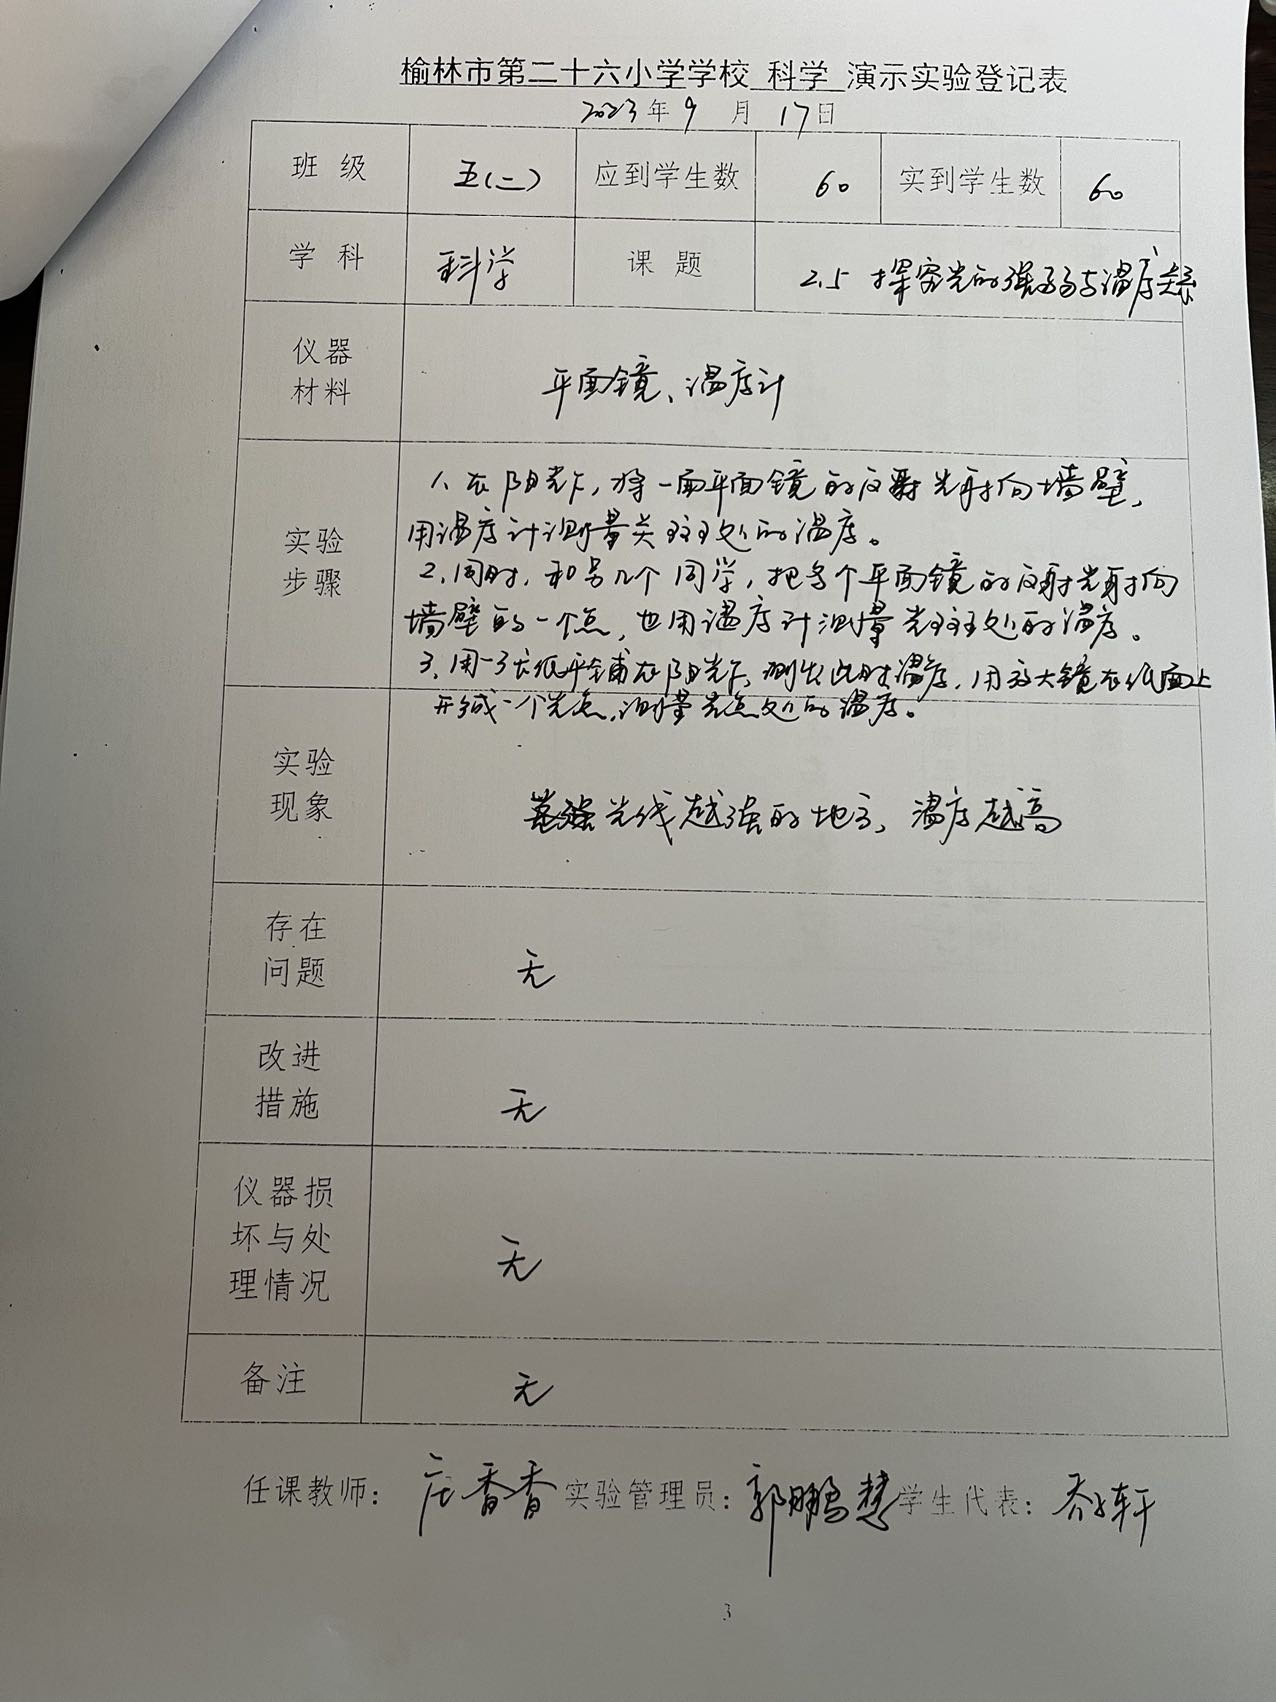 榆林市第二十六小学学校 科学 演示实验登记表
2023年9月17日
班级 五(二) 应到学生数 60 实到学生数 60
学科 科学 课题 2.5 探究光的强弱与温度关系
仪器
材料
平面镜、温度计
实验
步骤
1、在阳光下,将一面平面镜的反射光射向墙壁,
用温度计测量光斑处的温度。
2、同时,和另几个同学,把多个平面镜的反射光射向
墙壁的一个点,也用温度计测量光斑处的温度。
3、用一张纸平铺在阳光下,测出此时温度,用放大镜在纸面上
形成一个光点,测量光点处的温度。
实验
现象
光线越强的地方,温度越高
存在
问题
无
改进
措施
无
仪器损
坏与处
理情况
无
备注 无
任课教师: 庄香香 实验管理员: 郭鹏慧 学生代表: 轩
3